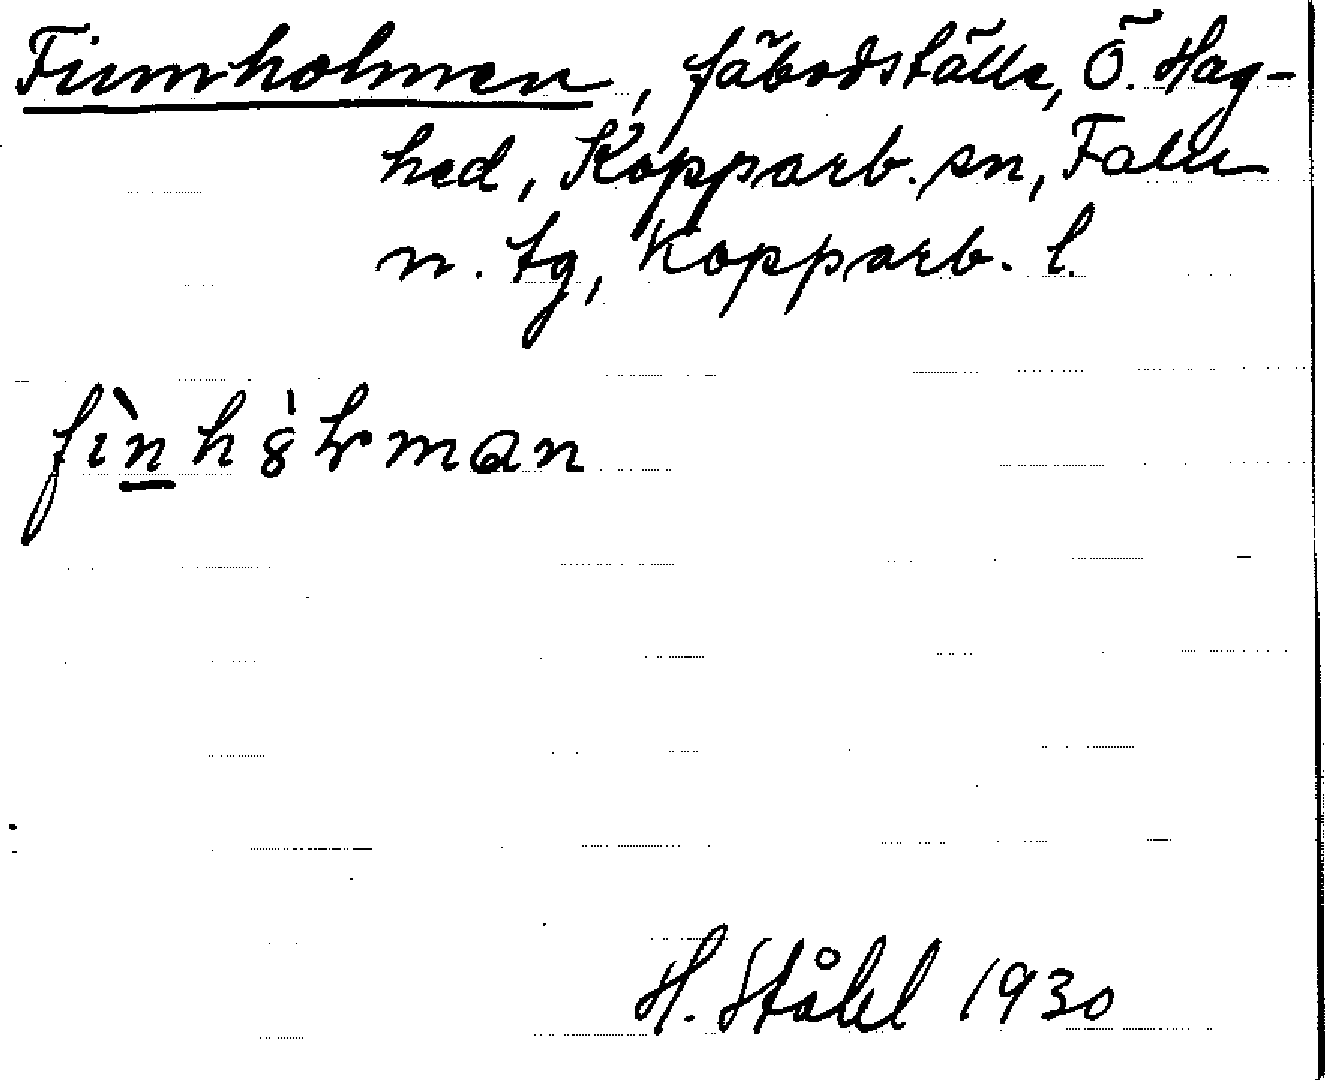 Finnholmen, fäbodställe, Ö. Hag-
hed, Kopparb. sn, Falu
n. tg, Kopparb. l.
H. Ståhl 1930